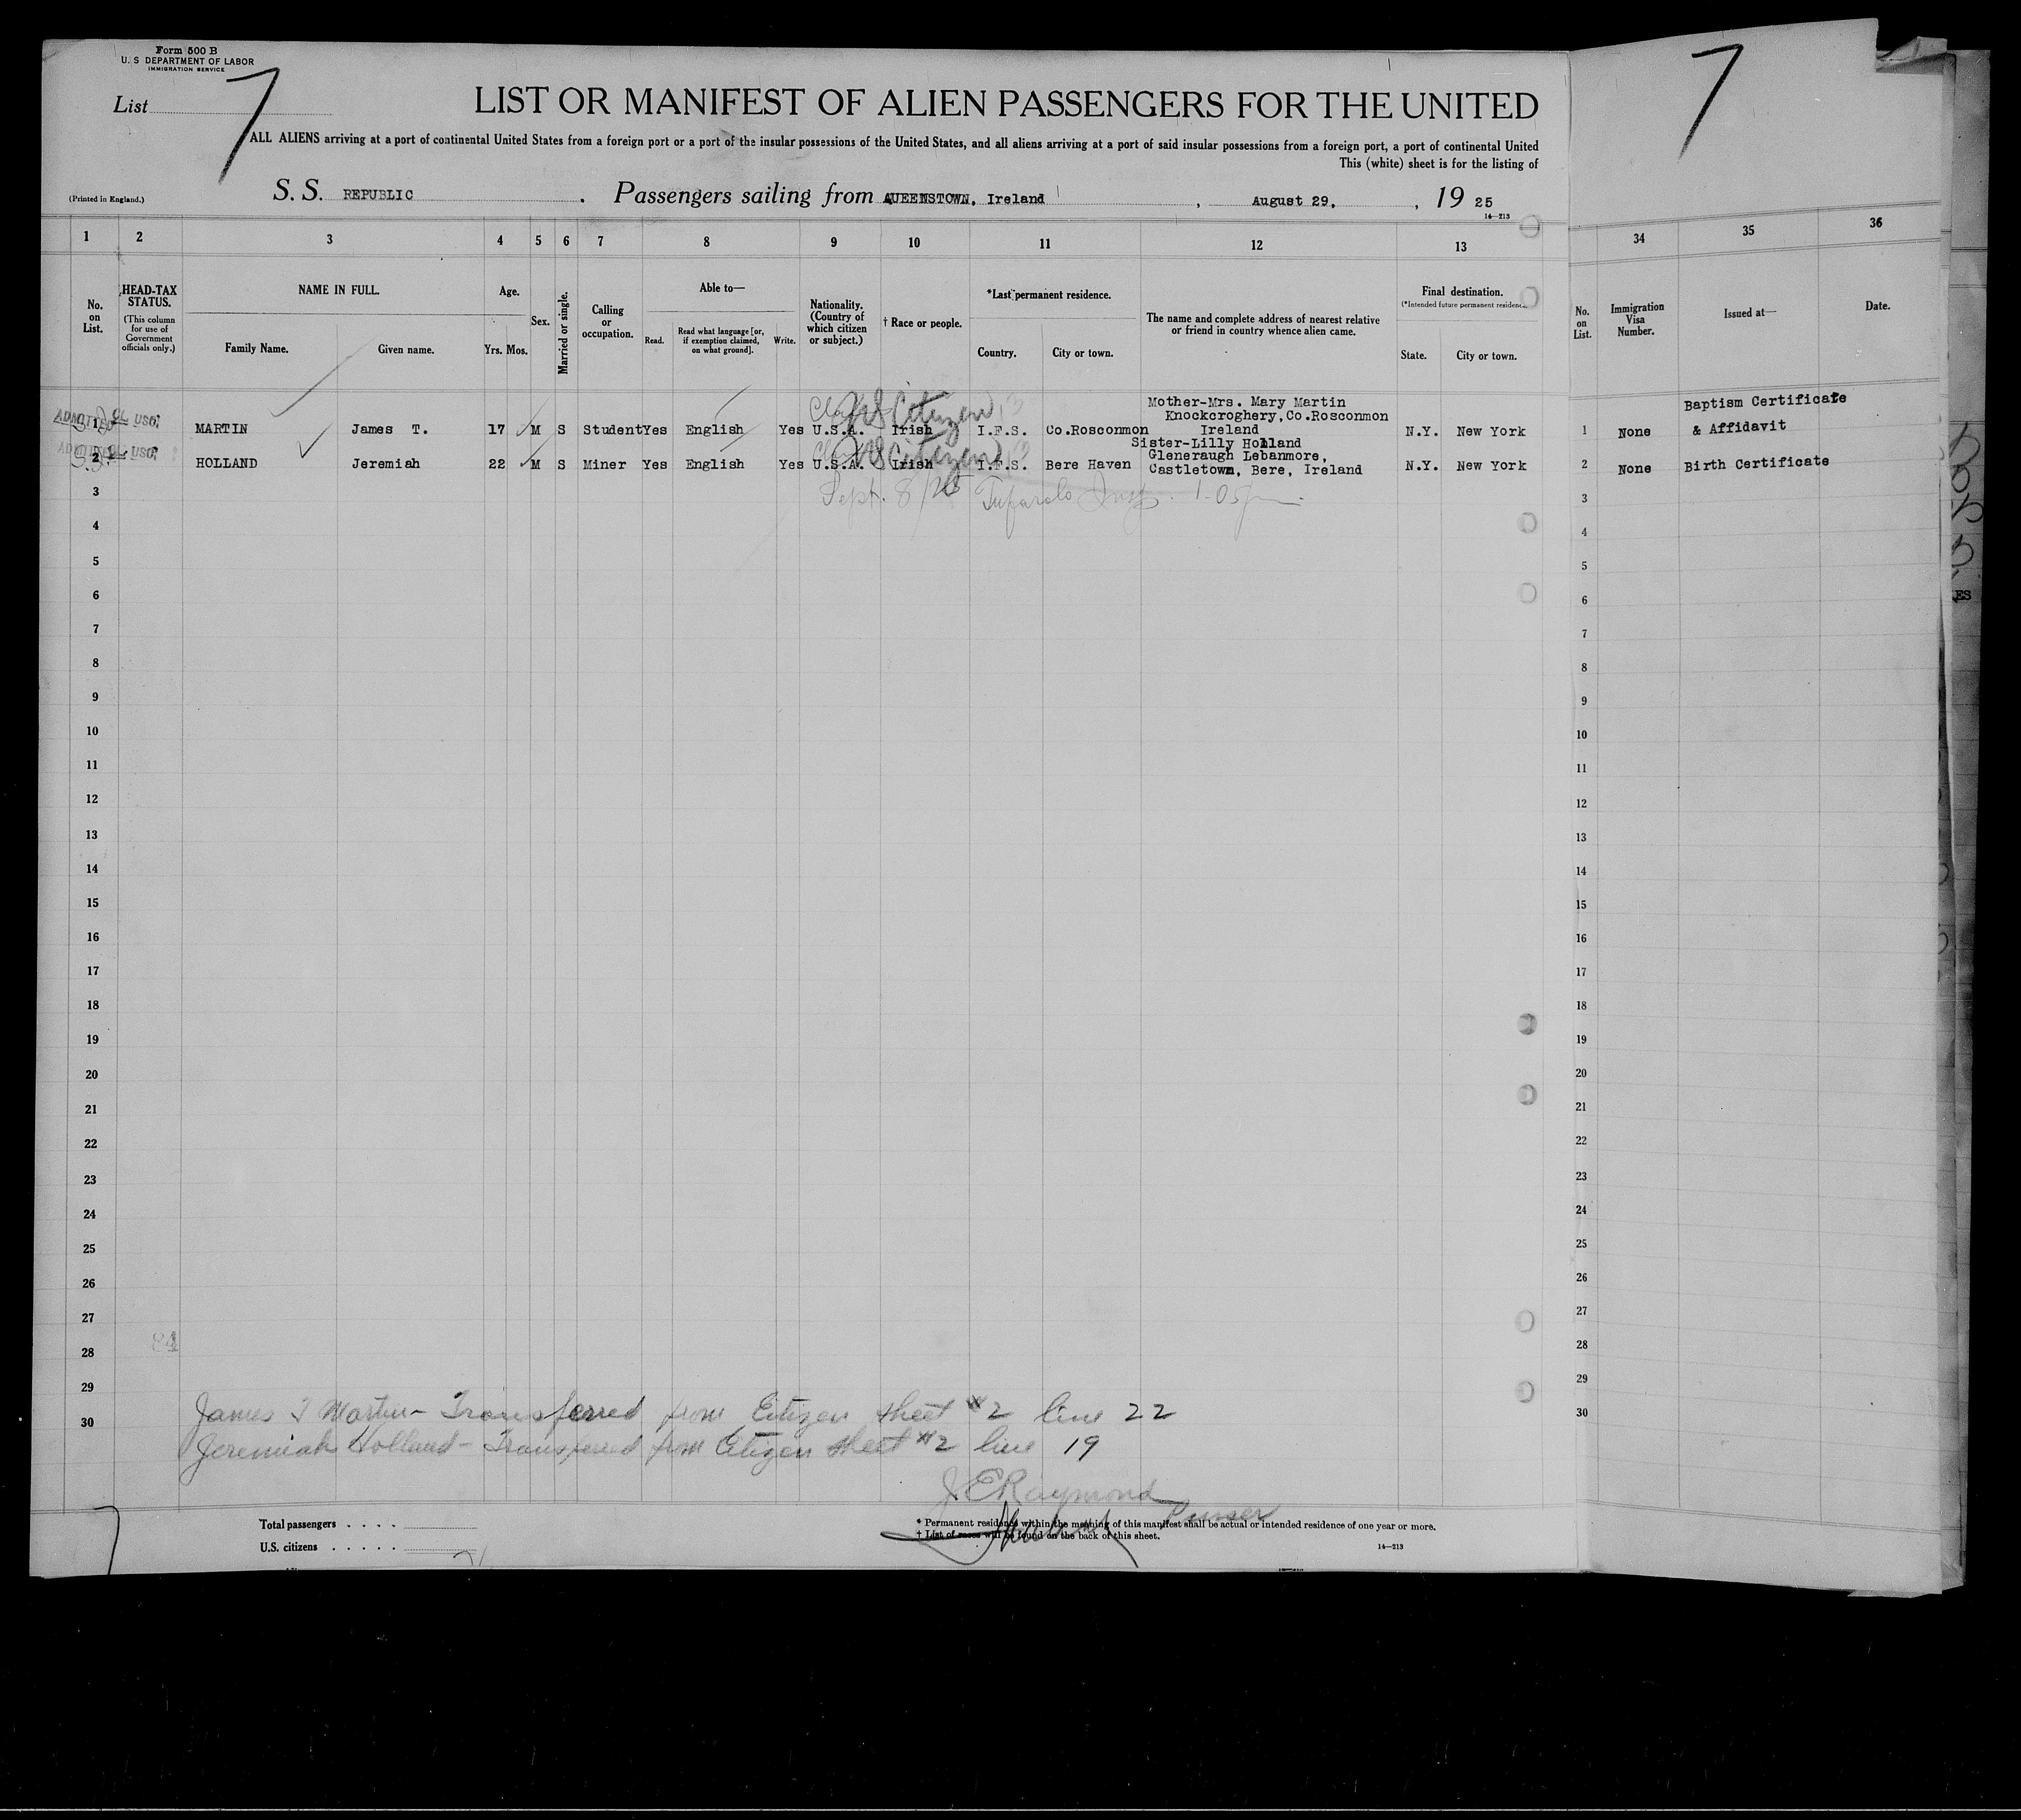 Form 500 B
U. S DEPARTMENT OF LABOR
IMMIGRATION SERVICE
List 7
LIST OR MANIFEST OF ALIEN PASSENGERS FOR THE UNITED
7
ALL ALIENS arriving at a port of continental United States from a foreign port or a port of the insular possessions of the United States, and all aliens arriving at a port of said insular possessions from a foreign port, a port of continental United
This (white) sheet is for the listing of
(Printed in England.)
S. S. REPUBLIC . Passengers sailing from QUEENSTOWN, Ireland , August 29, , 19 25
14—213
1 2 3 4 5 6 7 8 9 10 11 12 13 34 35 36
No. on List.
HEAD-TAX STATUS.
(This column for use of Government officials only.)
NAME IN FULL.
Family Name. Given name.
Age.
Yrs. Mos.
Sex.
Married or single.
Calling or occupation.
Able to—
Read. Read what language [or, if exemption claimed, on what ground]. Write.
Nationality. (Country of which citizen or subject.)
† Race or people.
*Last permanent residence.
Country. City or town.
The name and complete address of nearest relative or friend in country whence alien came.
Final destination.
(*Intended future permanent residence.)
State. City or town.
No. on List.
Immigration Visa Number.
Issued at—
Date.
US Citizen
Mother-Mrs. Mary Martin
Knockcroghery,Co.Rosconmon
Ireland
Baptism Certificate
& Affidavit
1 MARTIN James T. 17 M S Student Yes English Yes U.S.A. Irish I.F.S. Co.Rosconmon N.Y. New York 1 None
US Citizen
Sister-Lilly Holland
Gleneraugh Lebanmore,
Castletown, Bere, Ireland
2 HOLLAND Jeremiah 22 M S Miner Yes English Yes U.S.A. Irish I.F.S. Bere Haven N.Y. New York 2 None Birth Certificate
3 Sept. 8/25 1-05 3
4 4
5 5
6 6
7 7
8 8
9 9
10 10
11 11
12 12
13 13
14 14
15 15
16 16
17 17
18 18
19 19
20 20
21 21
22 22
23 23
24 24
25 25
26 26
27 27
28 28
29 29
30 30
James T Martin - Transferred from Citizen sheet #2 line 22
Jeremiah Holland - Transferred from Citizen sheet #2 line 19
J E Raymond
Purser
Total passengers . . . .
U.S. citizens . . . . .
* Permanent residence within the meaning of this manifest shall be actual or intended residence of one year or more.
† List of races will be found on the back of this sheet.
14—213